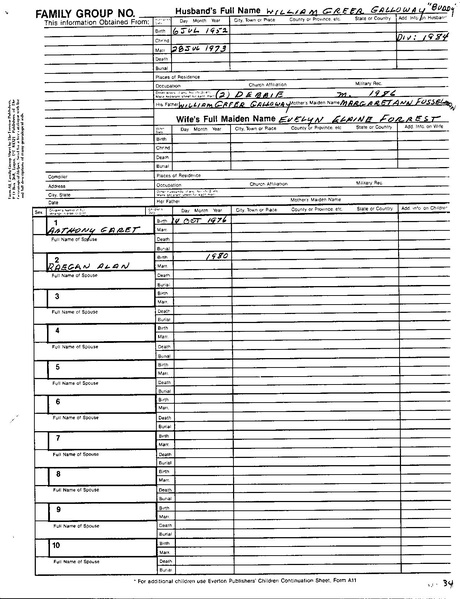 FAMILY GROUP NO. Husband's Full Name WILLIAM GREER GALLOWAY "BUDDY"
This Information Obtained From: Day Month Year City, Town or Place County or Province, etc. State or Country Add. Info. on Husband
Birth 6 JUL 1952
Chr'nd Div: 1984
Marr. 28 JUL 1973
Death
Burial
Places of Residence
Occupation Church Affiliation Military Rec.
(2) DEBBIE m. 1986
His Father WILLIAM GREER GALLOWAY Mother's Maiden Name MARGARET ANN
Wife's Full Maiden Name EVELYN ELAINE FORREST
Day Month Year City, Town or Place County or Province, etc. State or Country Add. Info. on Wife
Birth
Chr'nd
Death
Burial
Compiler Places of Residence
Address Occupation Church Affiliation Military Rec.
City, State
Date Her Father Mother's Maiden Name
Sex Day Month Year City, Town or Place County or Province, etc. State or Country Add. Info. on Children
1 Birth 4 OCT 1976
ANTHONY GARET Marr.
Full Name of Spouse Death
Burial
2 Birth 1980
RAEGAN ALAN Marr.
Full Name of Spouse Death
Burial
3 Birth
Marr.
Full Name of Spouse Death
Burial
4 Birth
Marr.
Full Name of Spouse Death
Burial
5 Birth
Marr.
Full Name of Spouse Death
Burial
6 Birth
Marr.
Full Name of Spouse Death
Burial
7 Birth
Marr.
Full Name of Spouse Death
Burial
8 Birth
Marr.
Full Name of Spouse Death
Burial
9 Birth
Marr.
Full Name of Spouse Death
Burial
10 Birth
Marr.
Full Name of Spouse Death
Burial
* For additional children use Everton Publishers' Children Continuation Sheet, Form A11
34